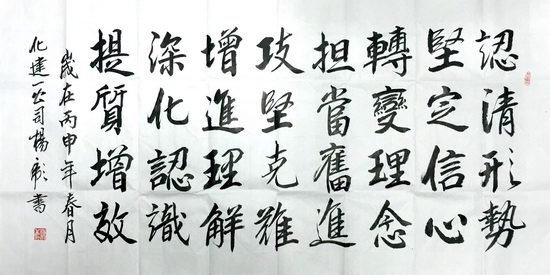 認清形勢
堅定信心
轉變理念
担當奮進
攻堅克難
增進理解
深化認識
提質增效
歲在丙申年春月
化建一公司楊彪書